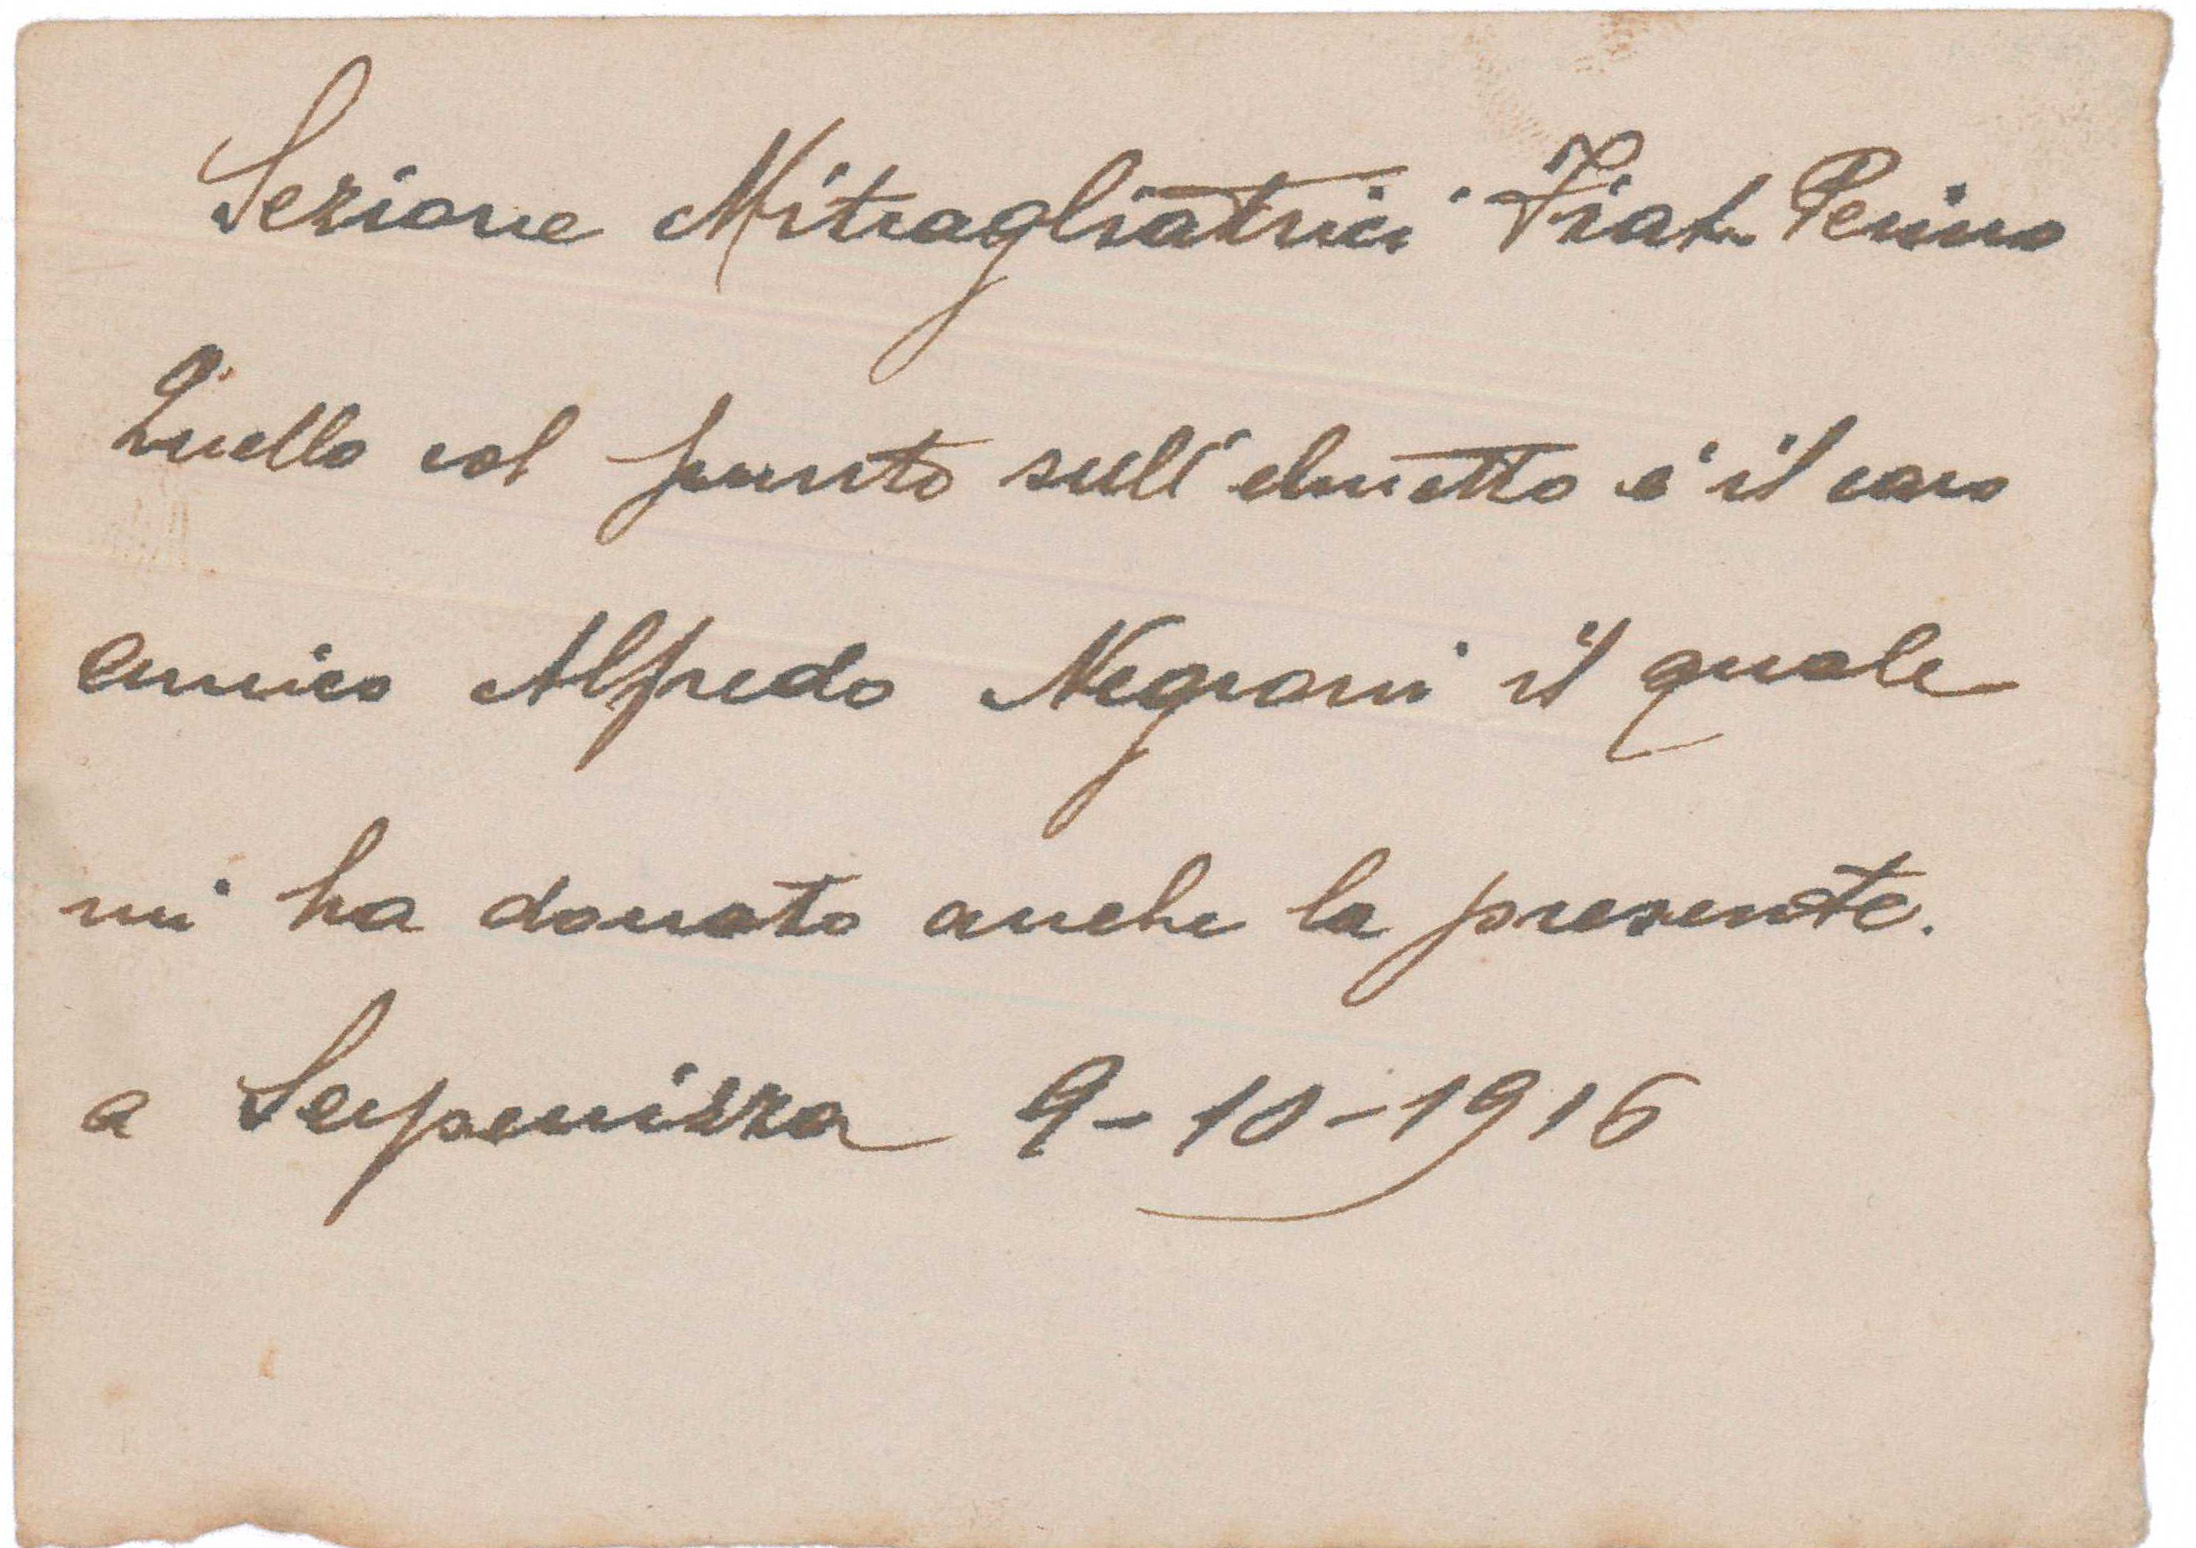 Sezione Mitragliatrici Fiat Perino
Quello col punto sull'elmetto è il caro
amico Alfredo Negroni il quale
mi ha donato anche la presente.
a Serpenizza 9-10-1916